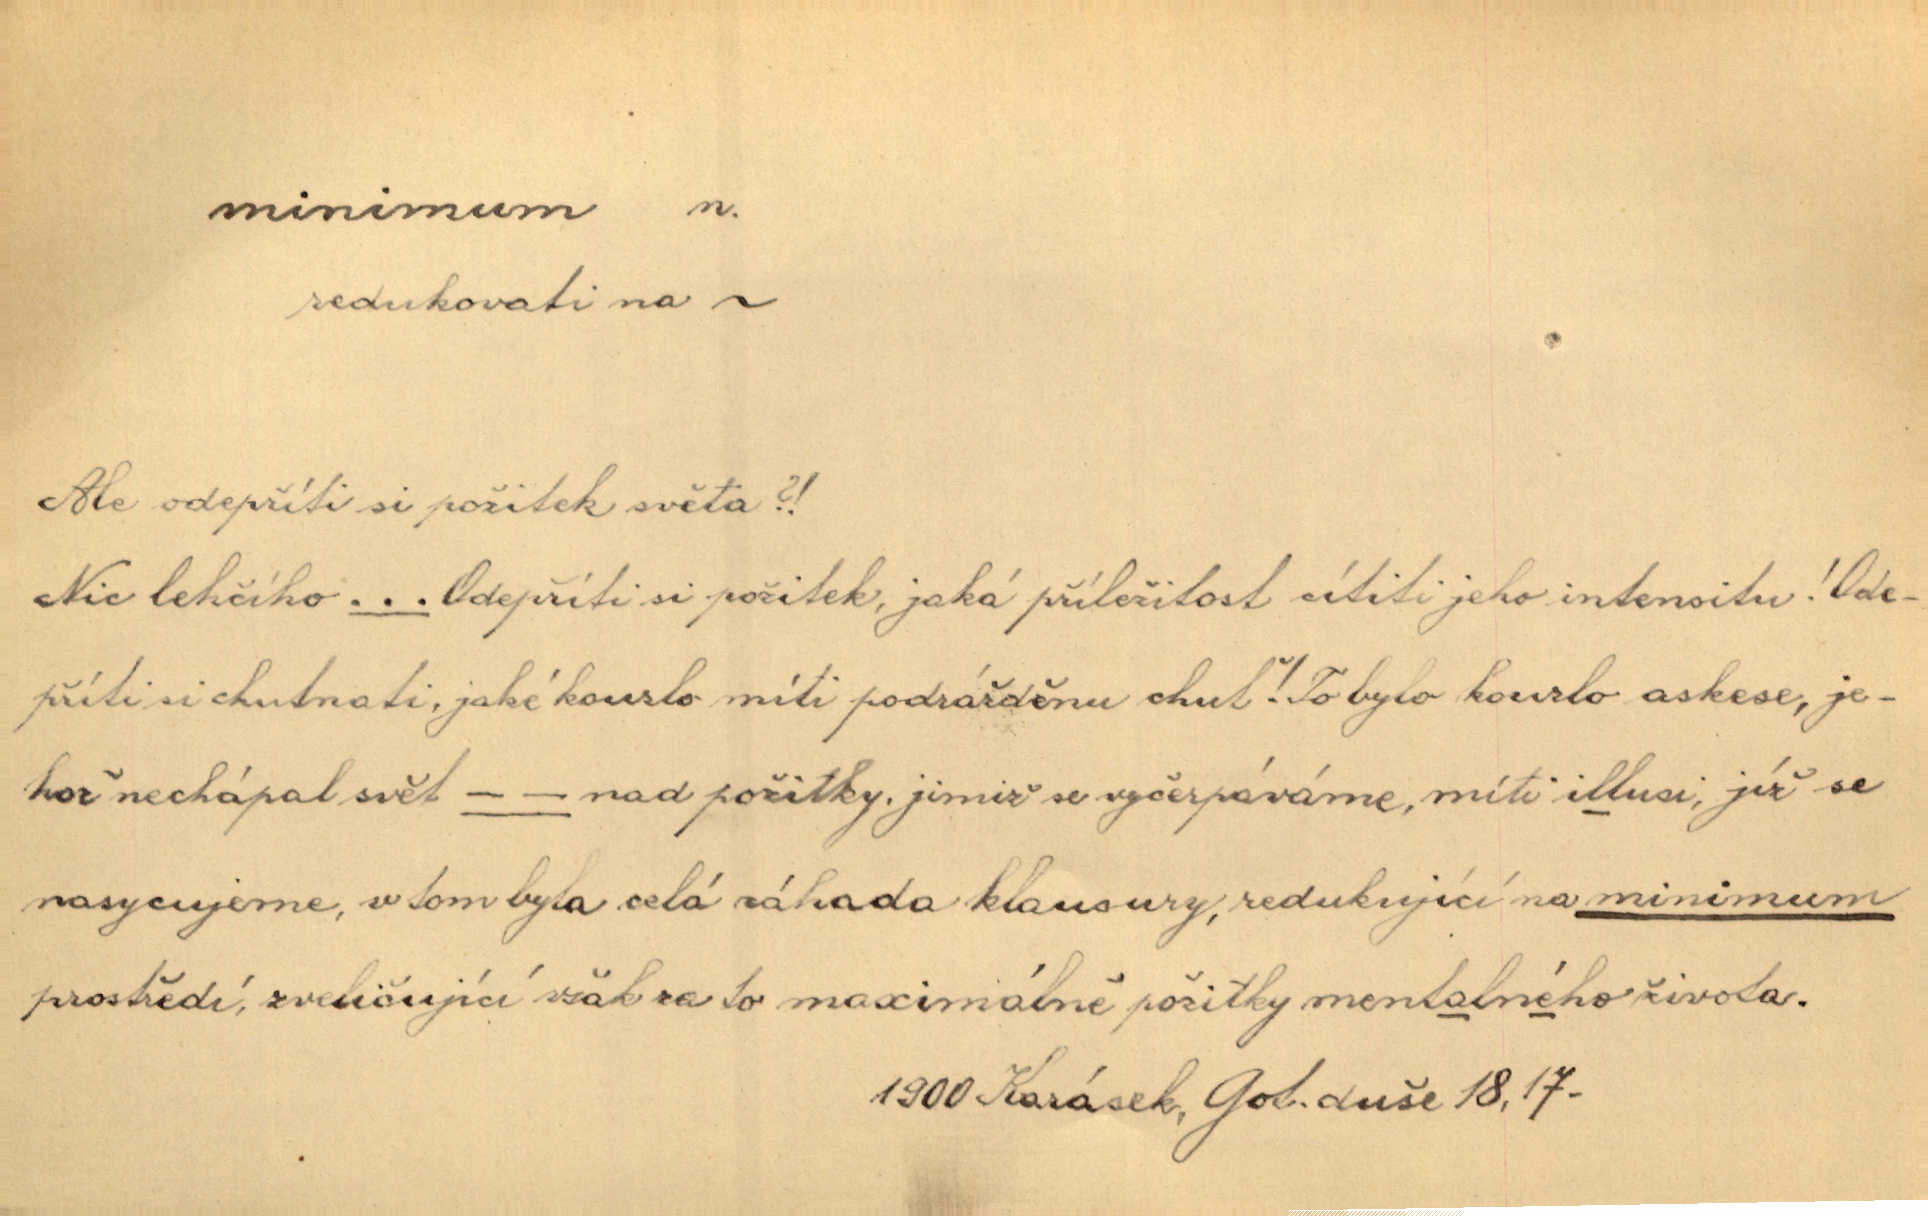 minimum n.
redukovati na ~
Ale odepříti si požitek světa?!
Nic lehčího ... Odepříti si požitek, jaká příležitost cítiti jeho intensitu! Ode-
příti si chutnati, jaké kouzlo míti podrážděnu chuť! To bylo kouzlo askese, je-
hož nechápal svět — — nad požitky, jimiž se vyčerpáváme, míti illusi, jíž se
nasycujeme, v tom byla celá záhada klausury, redukující na minimum
prostředí, zveličující však za to maximálně požitky mentalného života.
1900 Karásek, Got. duše 18, 17-